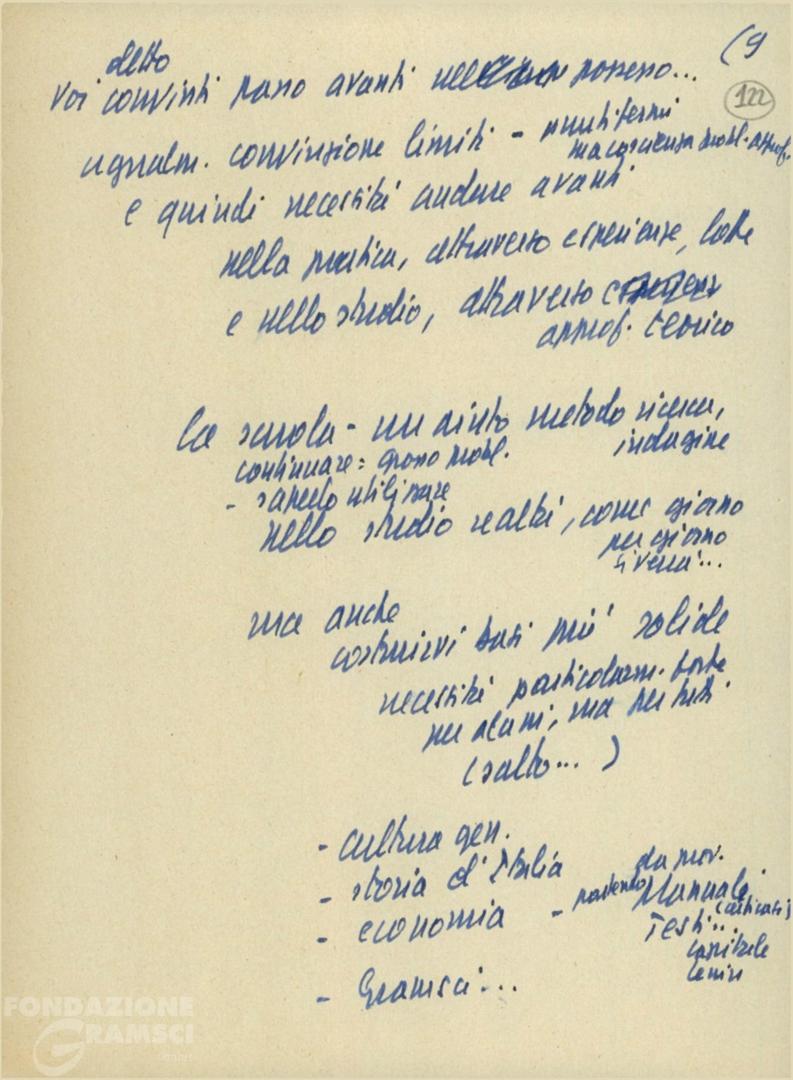 (9
122
detto
voi convinti passo avanti nel possesso...
ugualm. convinzione limiti - punti fermi
ma coscienza probl. approf.
e quindi necessità andare avanti
nella pratica, attraverso esperienze, lotte
e nello studio, attraverso
approf. teorico
La scuola - un aiuto metodo ricerca,
indagine
continuare = grosso probl.
- saperlo utilizzare
nello studio realtà, come giorno
per giorno
si verrà...
ma anche
costruirvi basi più solide
necessità particolarm. forte
per alcuni, ma per tutti
(salto... )
- cultura gen.
- storia d'Italia
- economia - partendo da pov.
Manuali
(criticati)
Testi...
Capitale
Lenin
- Gramsci...
FONDAZIONE
GRAMSCI